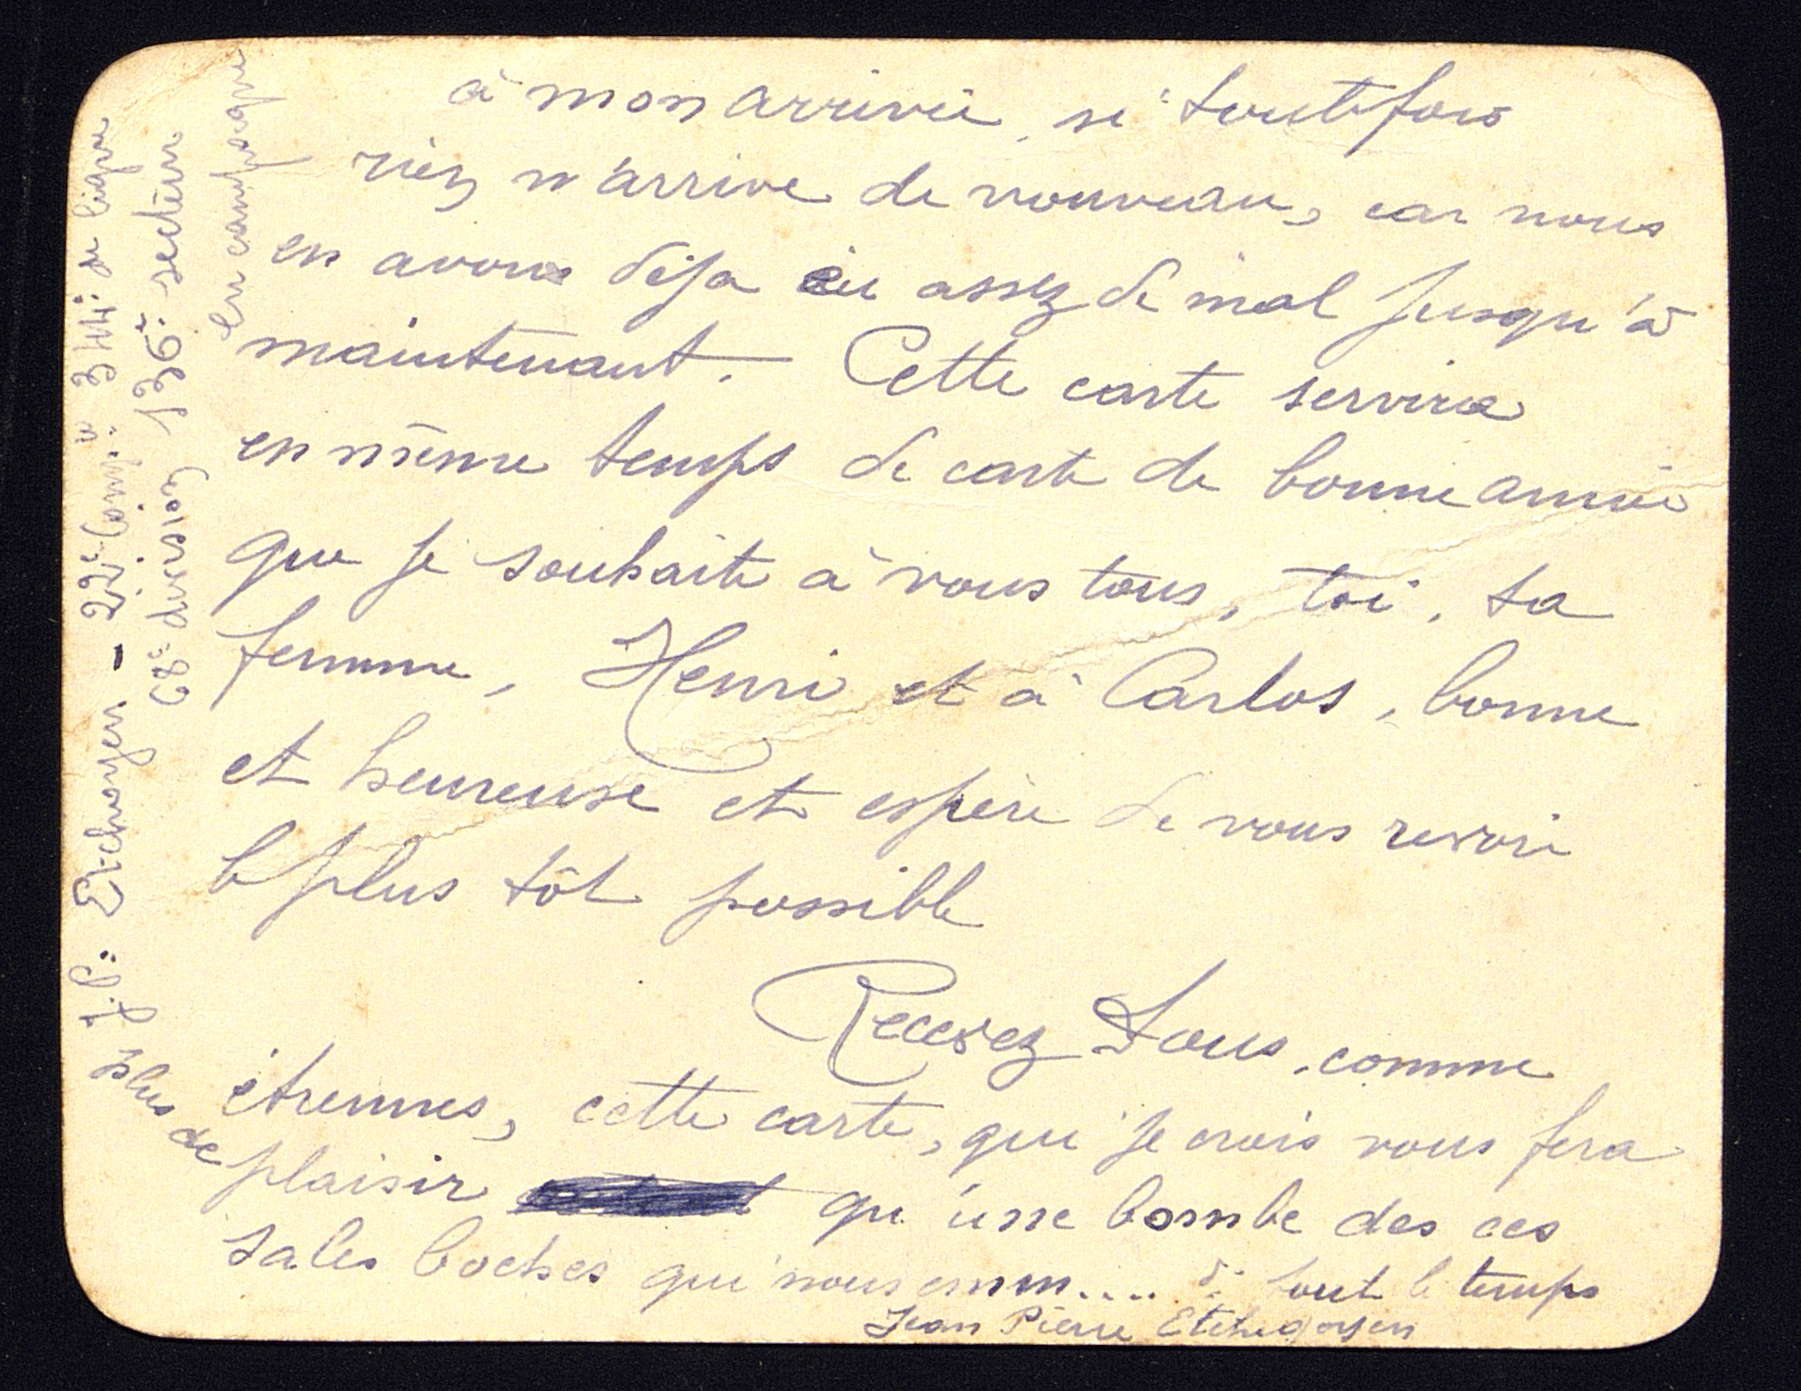 à mon arrivée, si toutefois
rien n'arrive de nouveau, car nous
en avons déja eu assez de mal jusqu'à
maintenant. Cette carte servira
en même temps de carte de bonne année
que je souhaite à vous tous, toi, ta
femme, Henri et à Carlos, bonne
et heureuse et espère de vous revoir
le plus tôt possible
Recevez tous, comme
étrennes, cette carte, qui je crois vous fera
plus de plaisir qu'une bombe des ces
sales boches qui nous emm.... tout le temps
Jean Pierre Etchegoyen
J. P: Etchegoyen - 22e Comp. 344e de ligne
68e division 136e secteur
En campagne